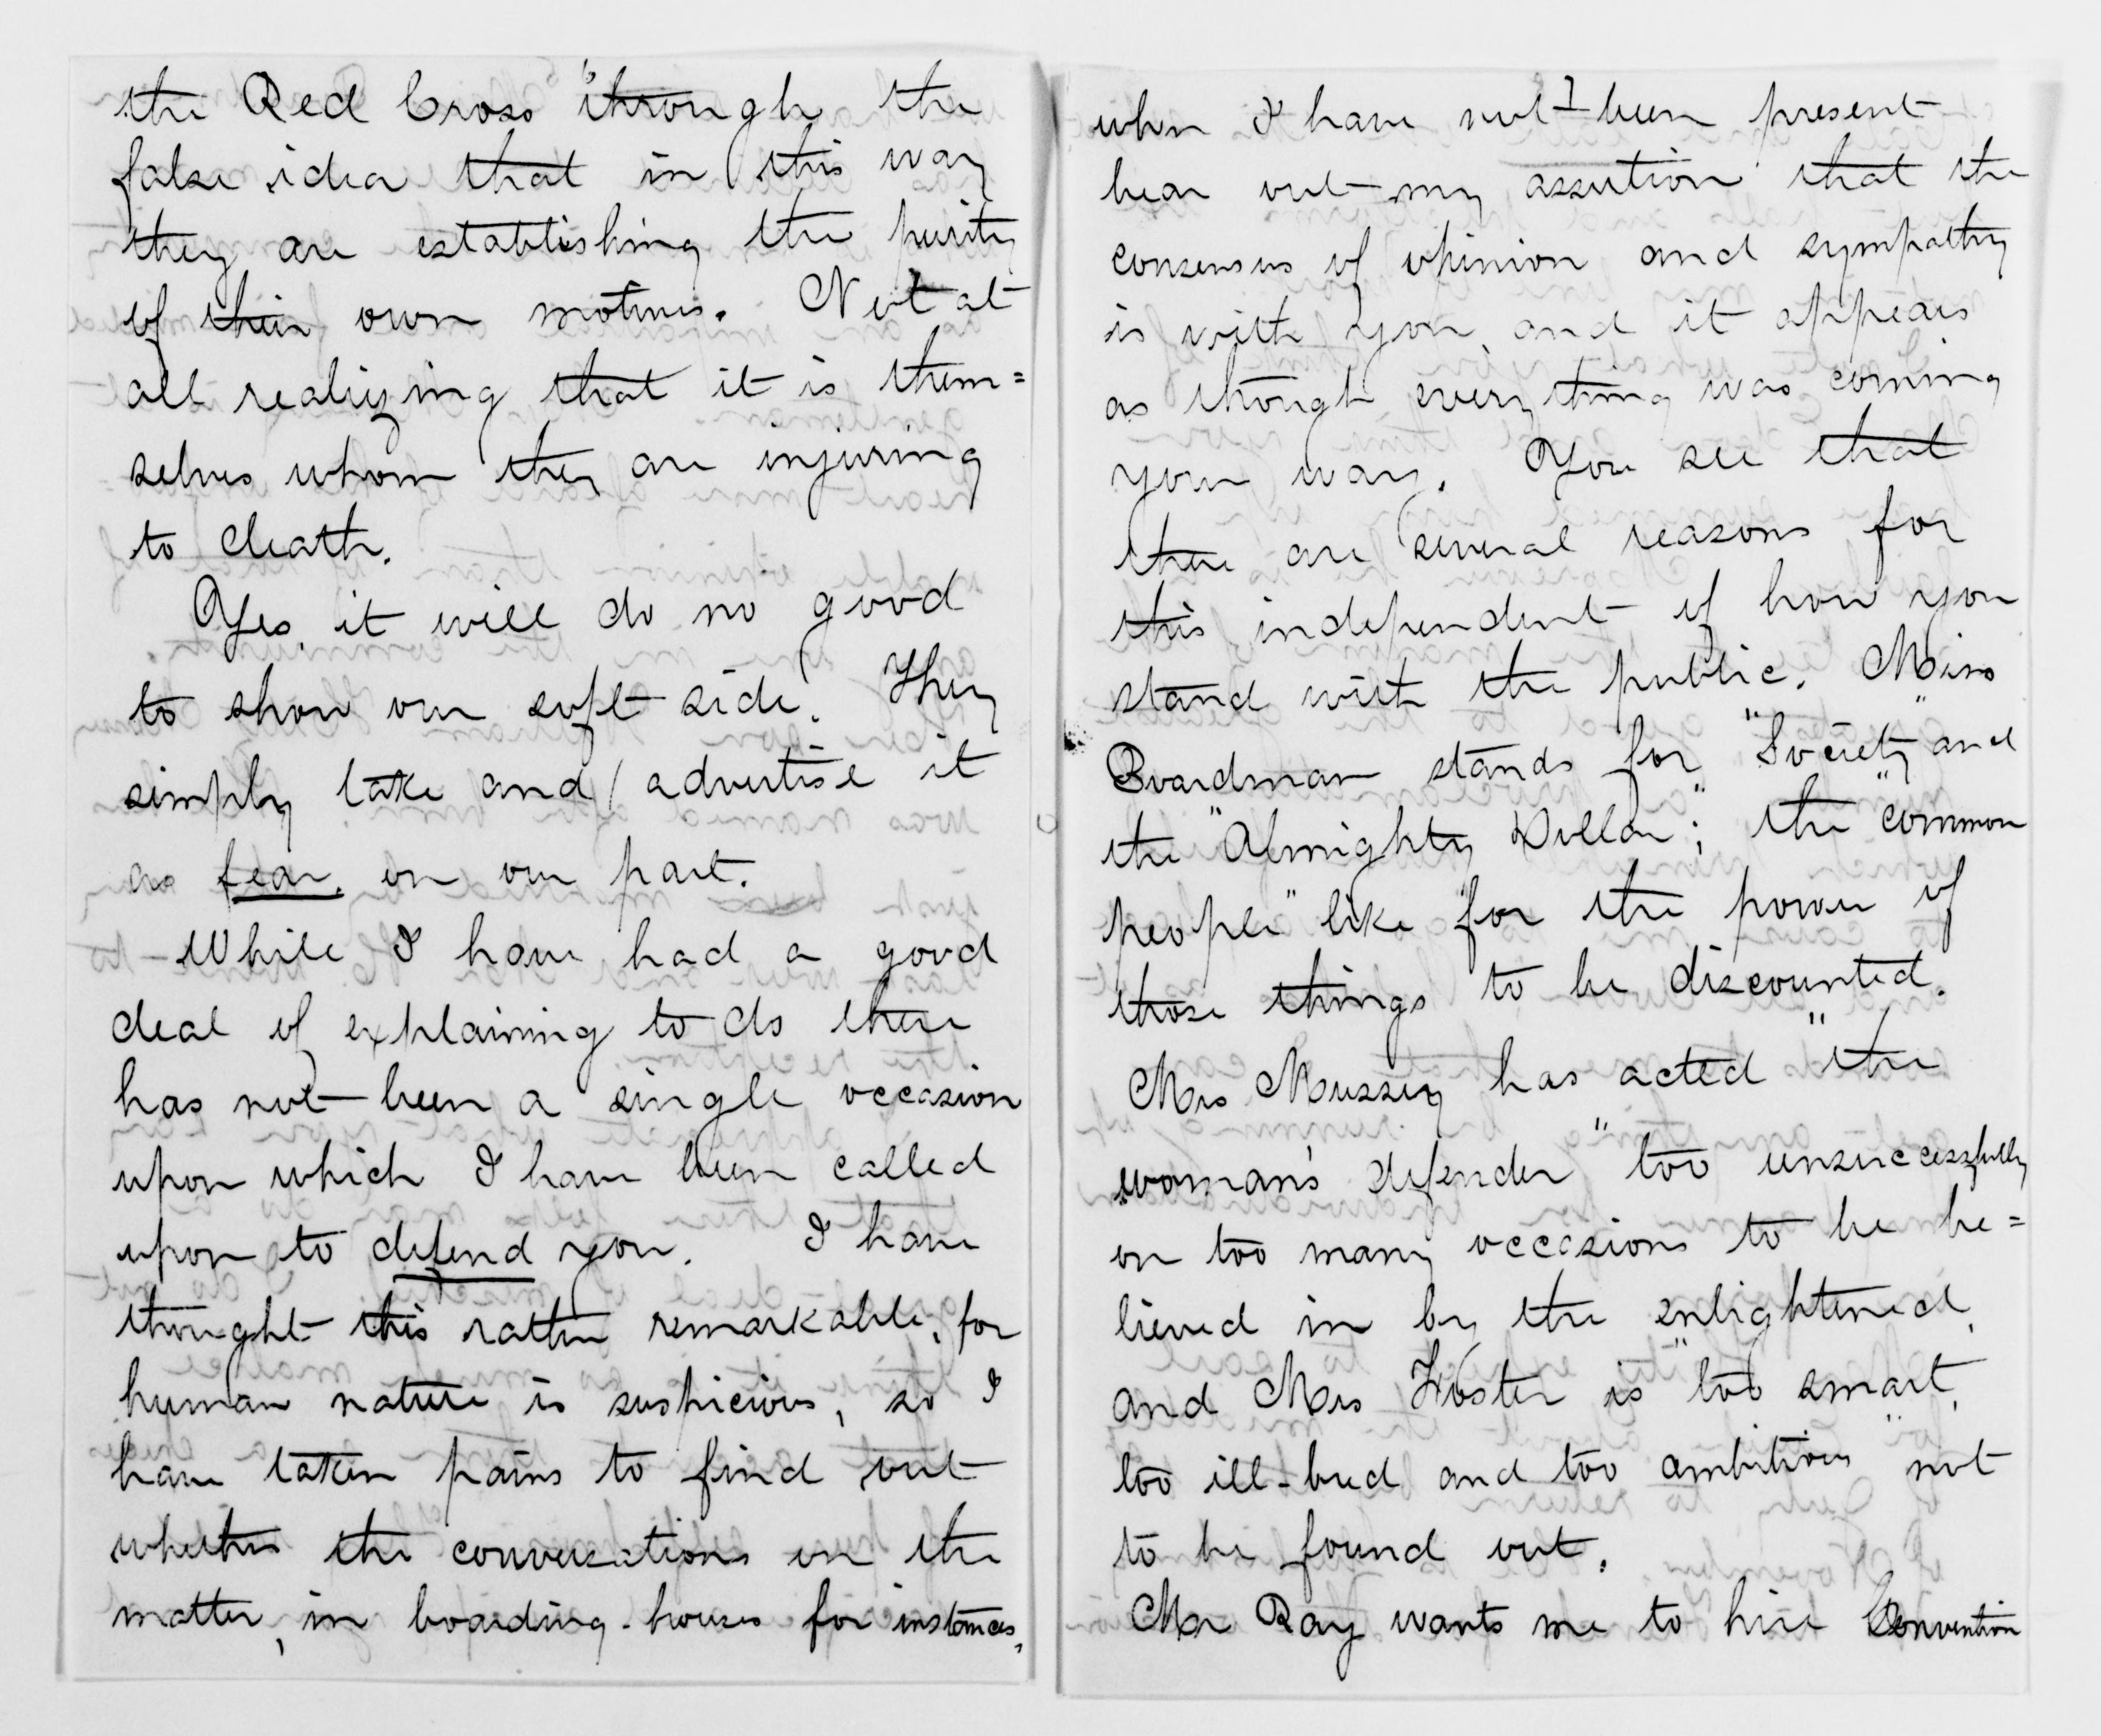 the Red Cross through the
false idea that in this way
they are establishing the purity
of their own motives. Not at
all realizing that it is them=
selves whom they are injuring
to death.
Yes, it will do no good
to show our soft side. They
simply take and advertise it
as fear, on our part.
While I have had a good
deal of explaining to do there
has not been a single occasion
upon which I have been called
upon to defend you. I have
thought this rather remarkable, for
human nature is suspicious, so I
have taken pains to find out
whether the conversations on the
matter, in boarding-houses for instances,
7
when I have not been present
bear out my assertion that the
consensus of opinion and sympathy
is with you, and it appears
as though everything was coming
your way. You see that
there are several reasons for
this independent of how you
stand with the public. Miss
Boardman stands for "Society" and
the "Almighty Dollar"; the "common
people" like for the power of
those things to be discounted.
Mrs Mussey has acted "the
woman's defender" too unsuccessfully
on too many occasions to be be=
lieved in by the enlightened,
and Mrs Foster is "too smart,
too ill-bred and too ambitious" not
to be found out.
Mr Ray wants me to hire Convention